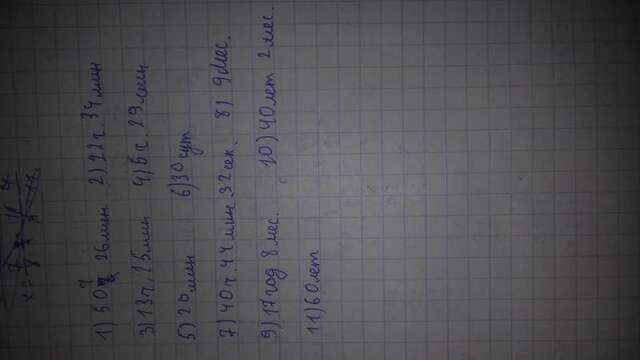 x = 7/8
1) 50ч 26мин 2) 22ч. 34мин
3) 13ч, 15мин 4) 6ч. 29мин
5) 20мин 6) 30сут
7) 40ч. 44мин 32сек. 8) 9мес.
9) 17год 8мес. 10) 40лет 2мес.
11) 60лет